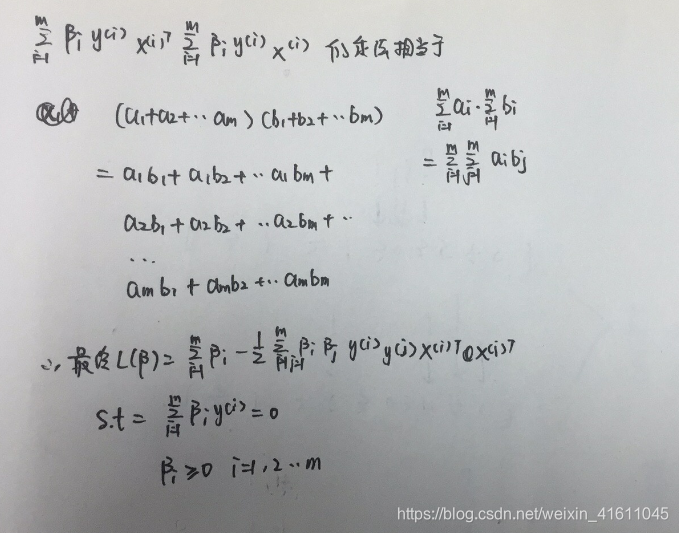 ∑_{i=1}^{m} β_i y^{(i)} x^{(i)T} ∑_{i=1}^{m} β_i y^{(i)} x^{(i)} 相当于
(a₁+a₂+··a_m)(b₁+b₂+··b_m) ∑_{i=1}^{m} a_i · ∑_{i=1}^{m} b_i
= a₁b₁+a₁b₂+··a₁b_m+ = ∑_{i=1}^{m} ∑_{j=1}^{m} a_i b_j
a₂b₁+a₂b₂+··a₂b_m+··
···
a_m b₁+a_m b₂+··a_m b_m
∴ 最终L(β)= ∑_{i=1}^{m} β_i − 1/2 ∑_{i=1,j=1}^{m} β_i β_j y^{(i)} y^{(j)} x^{(i)T} x^{(j)T}
s.t = ∑_{i=1}^{m} β_i y^{(i)} = 0
β_i ≥ 0 i=1,2··m
https://blog.csdn.net/weixin_41611045